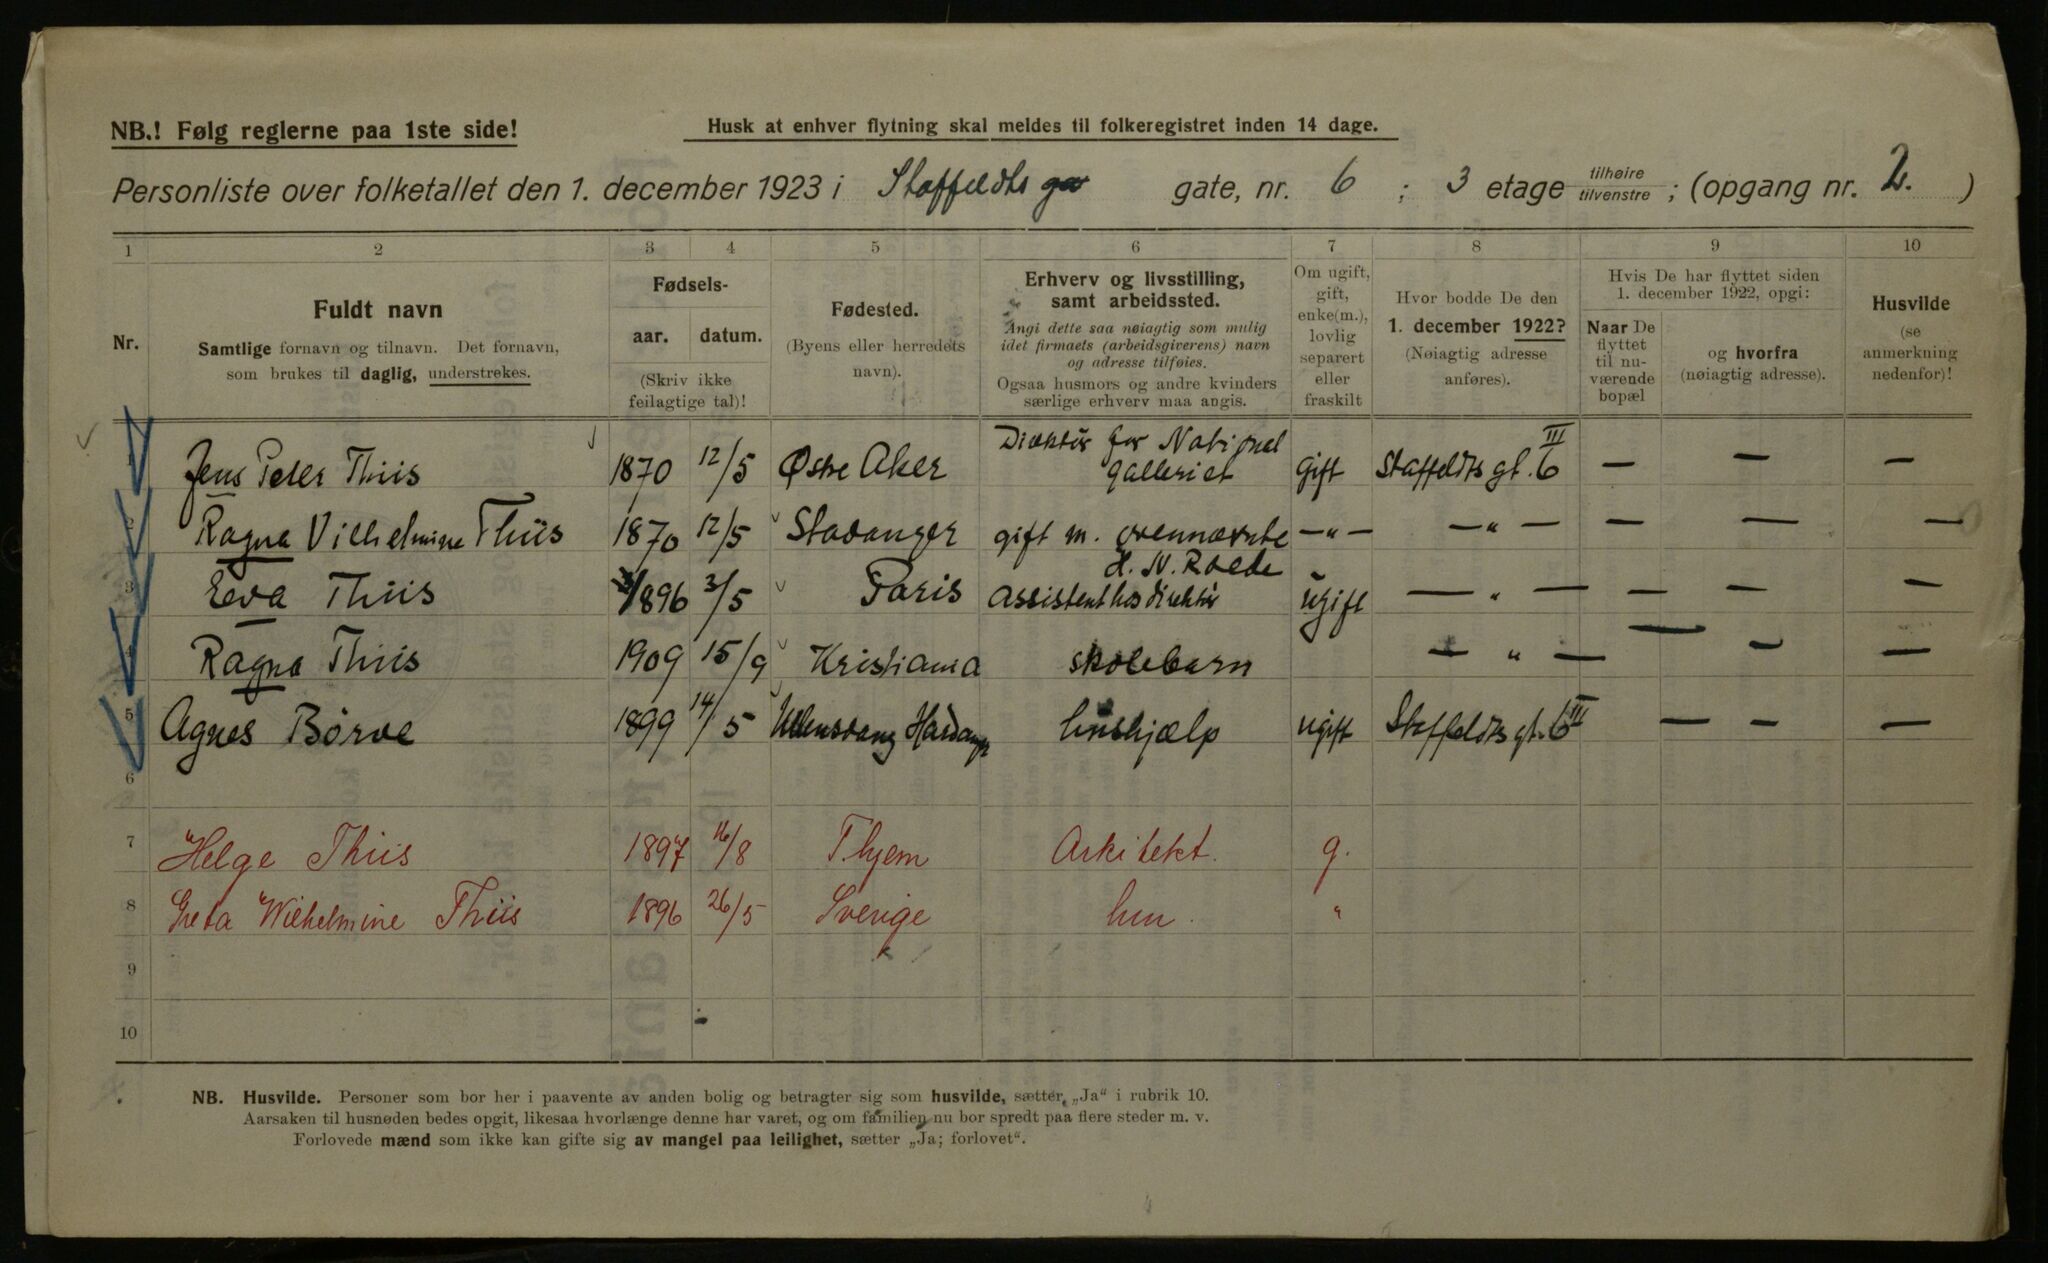 NB.! Følg reglerne paa 1ste side!
Husk at enhver flytning skal meldes til folkeregistret inden 14 dage.
Personliste over folketallet den 1. december 1923 i Staffeldts ga gate, nr. 6 ; 3 etage tilhøire tilvenstre ; (opgang nr. 2. )
1 2 3 4 5 6 7 8 9 10
Nr.
Fuldt navn
Samtlige fornavn og tilnavn. Det fornavn,
som brukes til daglig, understrekes.
Fødsels-
aar. datum.
(Skriv ikke
feilagtige tal)!
Fødested.
(Byens eller herredets
navn).
Erhverv og livsstilling,
samt arbeidssted.
Angi dette saa nøiagtig som mulig
idet firmaets (arbeidsgiverens) navn
og adresse tilføies.
Ogsaa husmors og andre kvinders
særlige erhverv maa angis.
Om ugift,
gift,
enke(m.),
lovlig
separert
eller
fraskilt
Hvor bodde De den
1. december 1922?
(Nøiagtig adresse
anføres).
Hvis De har flyttet siden
1. december 1922, opgi:
Naar De
flyttet
til nu-
værende
bopæl
og hvorfra
(nøiagtig adresse).
Husvilde
(se
anmerkning
nedenfor)!
1 Jens Peter Thiis 1870 12/5 Østre Aker Direktør for National galleriet gift Staffeldts gt. 6 III — — —
2 Ragna Vilhelmine Thiis 1870 12/5 Stavanger gift m. ovennævnte —"— —"— — — —
3 Eva Thiis 1896 3/5 Paris Assistent hos direktør H. N. Roede ugift —"— — — —
4 Ragna Thiis 1909 15/9 Kristiania skolebarn —"— — — —
5 Agnes Børve 1899 14/5 Ullensvang Hardanger hushjælp ugift Staffeldts gt. 6 III — — —
6
7 Helge Thiis 1897 16/8 T.hjem Arkitekt. g.
8 Greta Wilhelmine Thiis 1896 26/5 Sverige hm. "
9
10
NB. Husvilde. Personer som bor her i paavente av anden bolig og betragter sig som husvilde, sætter „Ja“ i rubrik 10.
Aarsaken til husnøden bedes opgit, likesaa hvorlænge denne har varet, og om familien nu bor spredt paa flere steder m. v.
Forlovede mænd som ikke kan gifte sig av mangel paa leilighet, sætter „Ja; forlovet“.